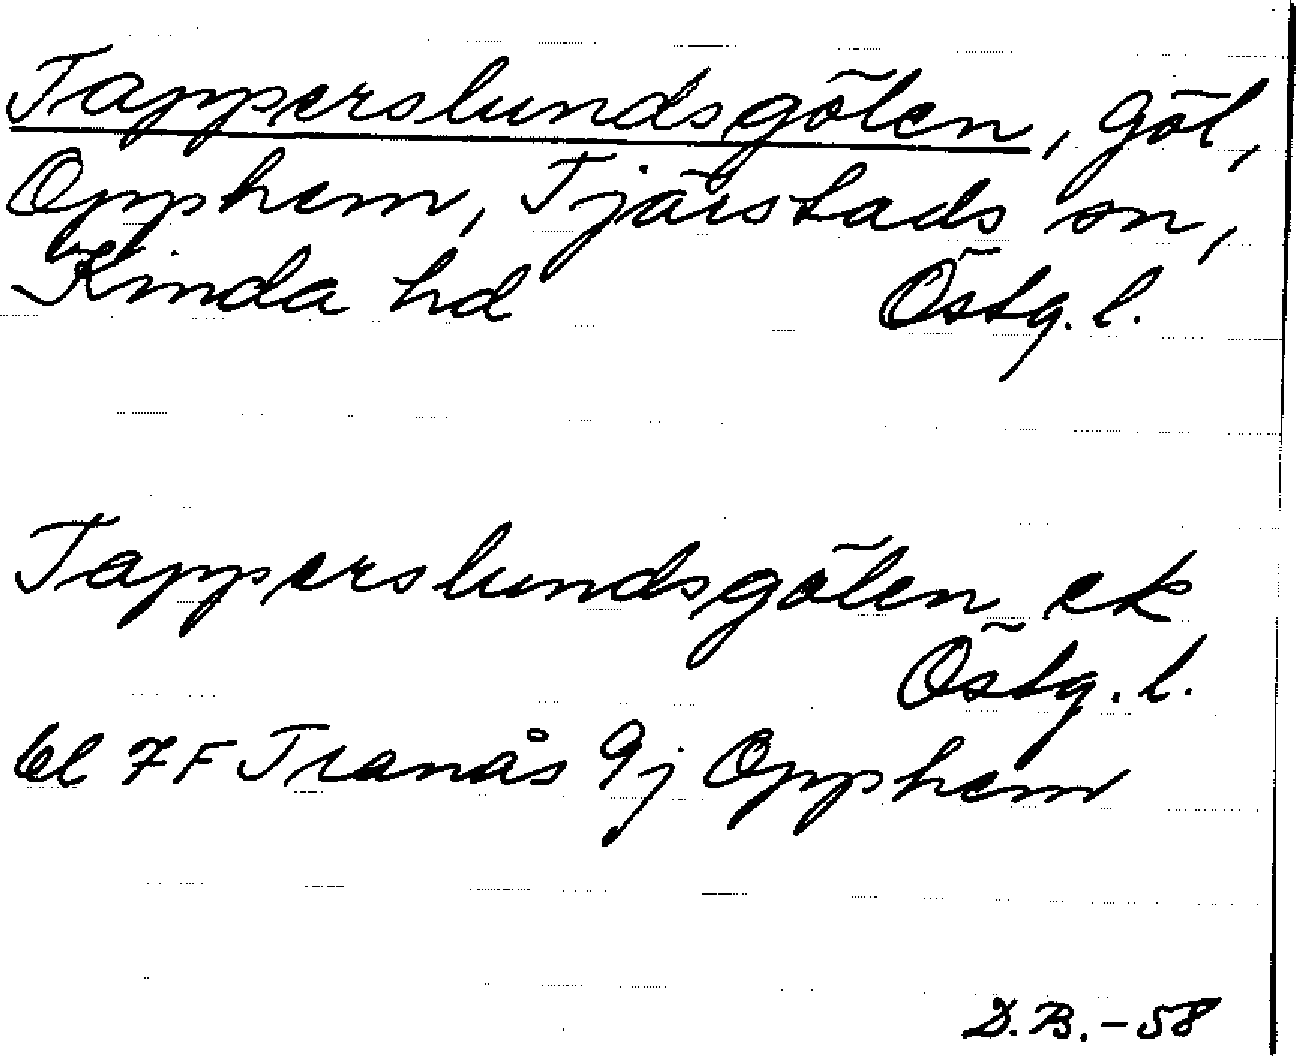 Tapperslundsgölen, göl,
Opphem, Tjärstads sn,
Kinda hd Östg. l.
Tapperslundsgölen ek
Östg. l.
bl 7F Tranås 9j Opphem
D.B. - 58